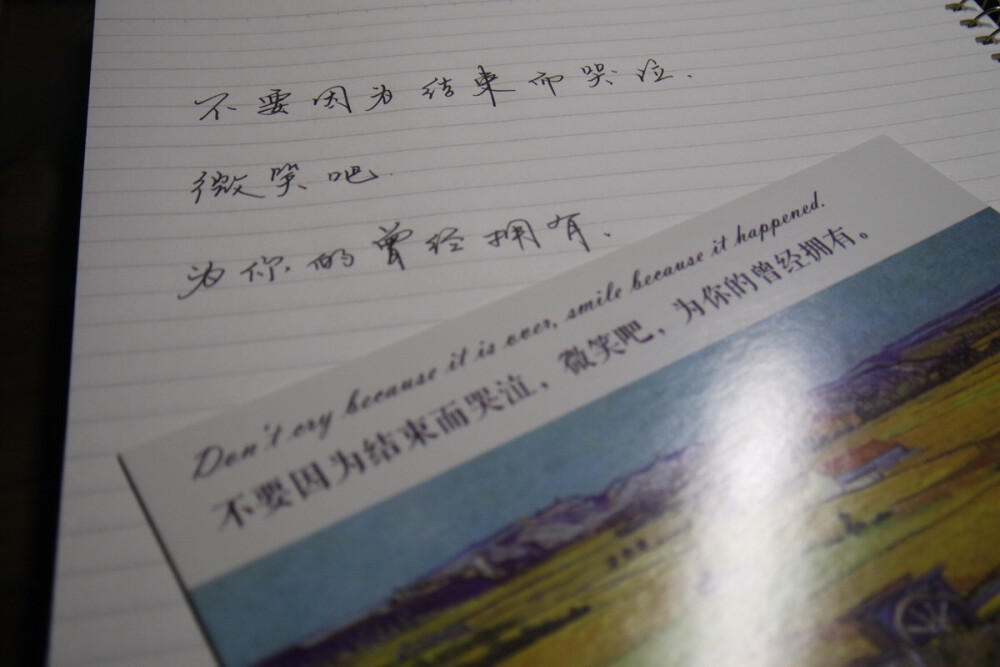 不要因为结束而哭泣.
微笑吧.
为你的曾经拥有.
Don't cry because it is over, smile because it happened.
不要因为结束而哭泣，微笑吧，为你的曾经拥有。